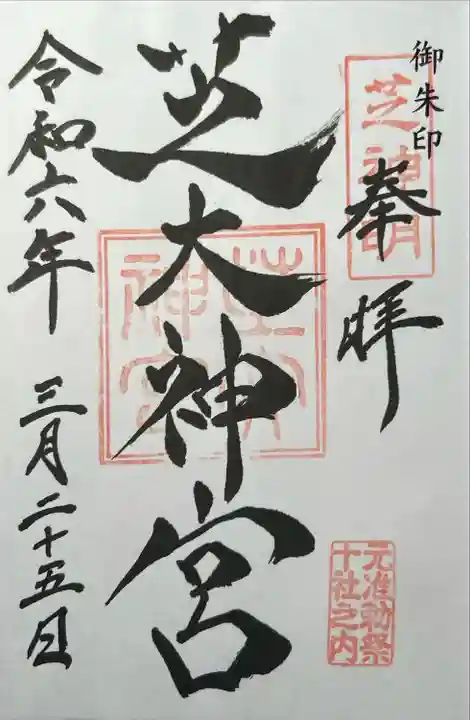 御朱印
芝神明
奉拝
芝大神宮
芝大
神宮
元准勅祭
十社之内
令和六年 三月二十五日